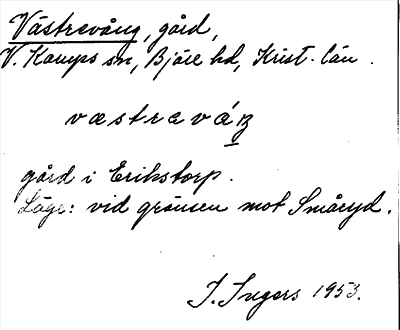 Västrevång, gård,
V. Karups sn, Bjäre hd, Krist. län.
væstraváꞑ
gård i Erikstorp.
Läge: vid gränsen mot Småryd.
I. Ingers 1953.